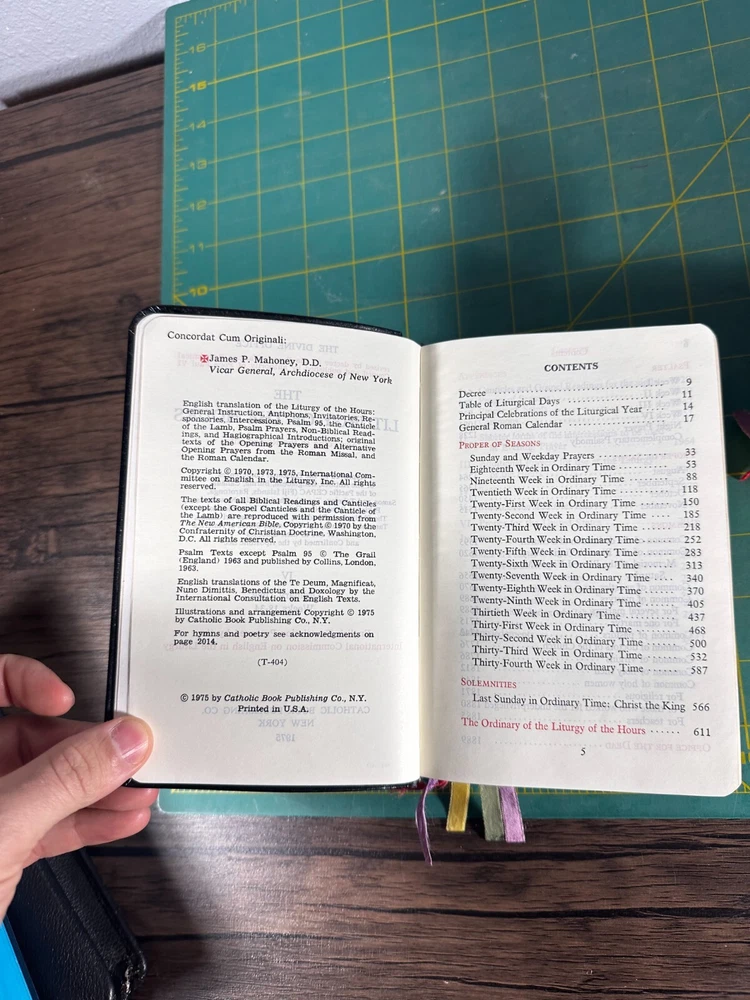 Concordat Cum Originali:
✠James P. Mahoney, D.D.
Vicar General, Archdiocese of New York
English translation of the Liturgy of the Hours:
General Instruction, Antiphons, Invitatories, Re-
sponsories, Intercessions, Psalm 95, the Canticle
of the Lamb, Psalm Prayers, Non-Biblical Read-
ings, and Hagiographical Introductions; original
texts of the Opening Prayers and Alternative
Opening Prayers from the Roman Missal, and
the Roman Calendar.
Copyright © 1970, 1973, 1975, International Com-
mittee on English in the Liturgy, Inc. All rights
reserved.
The texts of all Biblical Readings and Canticles
(except the Gospel Canticles and the Canticle of
the Lamb) are reproduced with permission from
The New American Bible, Copyright © 1970 by the
Confraternity of Christian Doctrine, Washington,
D.C. All rights reserved.
Psalm Texts except Psalm 95 © The Grail
(England) 1963 and published by Collins, London,
1963.
English translations of the Te Deum, Magnificat,
Nunc Dimittis, Benedictus and Doxology by the
International Consultation on English Texts.
Illustrations and arrangement Copyright © 1975
by Catholic Book Publishing Co., N.Y.
For hymns and poetry see acknowledgments on
page 2014.
(T-404)
© 1975 by Catholic Book Publishing Co., N.Y.
Printed in U.S.A.
CONTENTS
Decree 9
Table of Liturgical Days 11
Principal Celebrations of the Liturgical Year 14
General Roman Calendar 17
PROPER OF SEASONS
Sunday and Weekday Prayers 33
Eighteenth Week in Ordinary Time 53
Nineteenth Week in Ordinary Time 88
Twentieth Week in Ordinary Time 118
Twenty-First Week in Ordinary Time 150
Twenty-Second Week in Ordinary Time 185
Twenty-Third Week in Ordinary Time 218
Twenty-Fourth Week in Ordinary Time 252
Twenty-Fifth Week in Ordinary Time 283
Twenty-Sixth Week in Ordinary Time 313
Twenty-Seventh Week in Ordinary Time 340
Twenty-Eighth Week in Ordinary Time 370
Twenty-Ninth Week in Ordinary Time 405
Thirtieth Week in Ordinary Time 437
Thirty-First Week in Ordinary Time 468
Thirty-Second Week in Ordinary Time 500
Thirty-Third Week in Ordinary Time 532
Thirty-Fourth Week in Ordinary Time 587
SOLEMNITIES
Last Sunday in Ordinary Time: Christ the King 566
The Ordinary of the Liturgy of the Hours 611
5
16
15
14
13
12
11
10